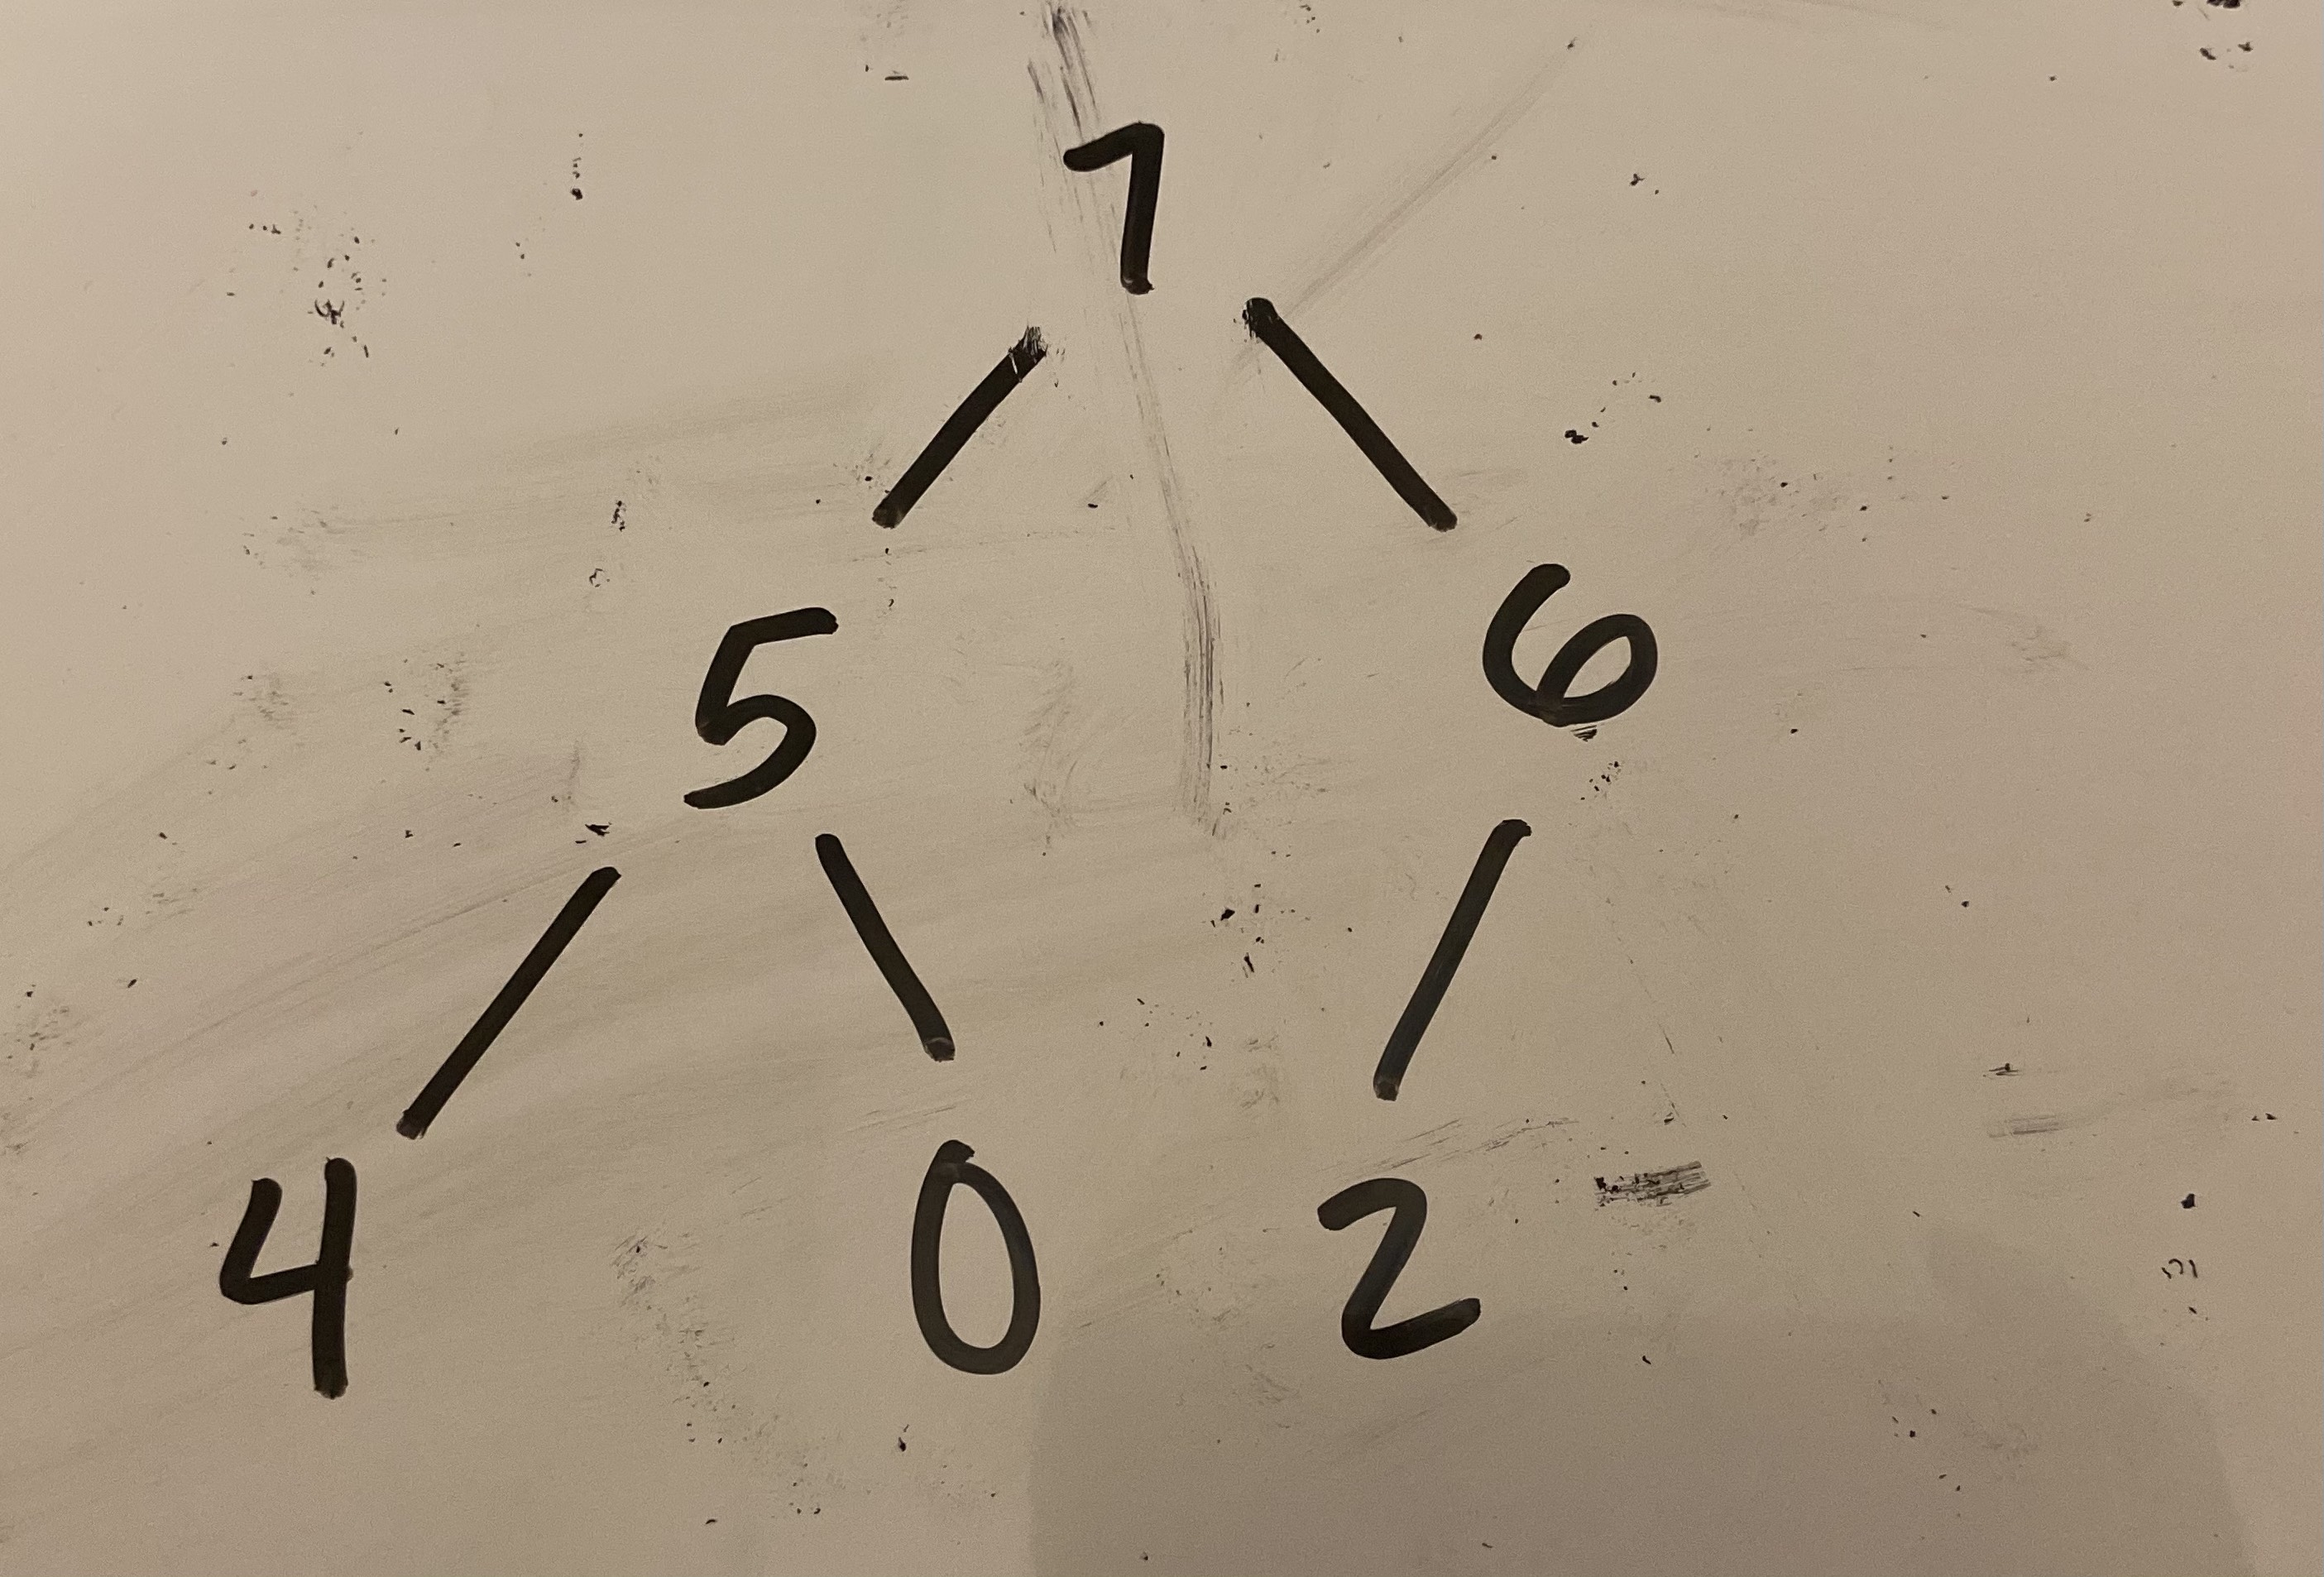 7
5 6
4 0 2